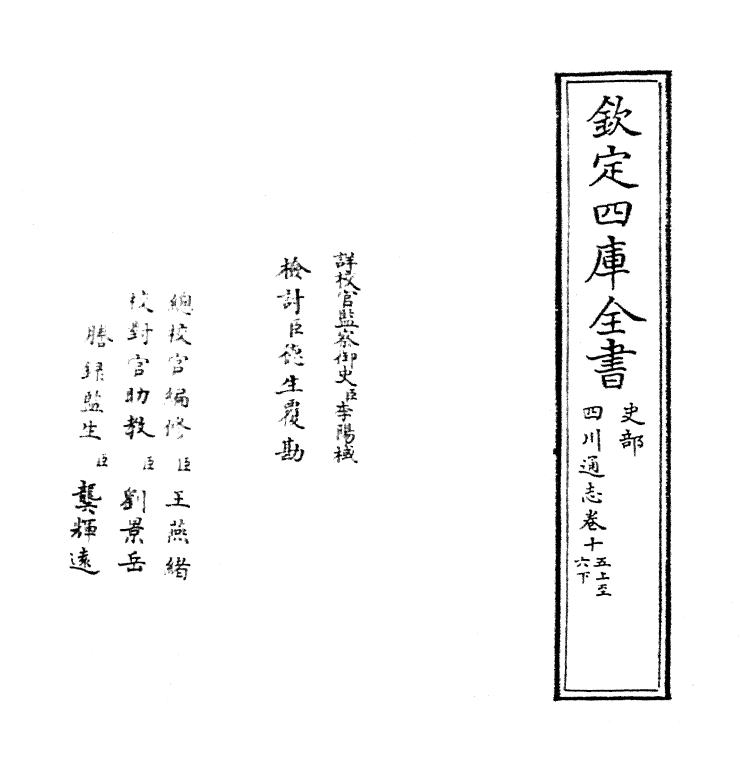 欽定四庫全書
史部
四川通志卷十五上至六下
詳校官監察御史臣李陽棫
檢討臣德生覆勘
總校官編修臣王燕緒
校對官助教臣劉景岳
謄錄監生臣龔輝遠